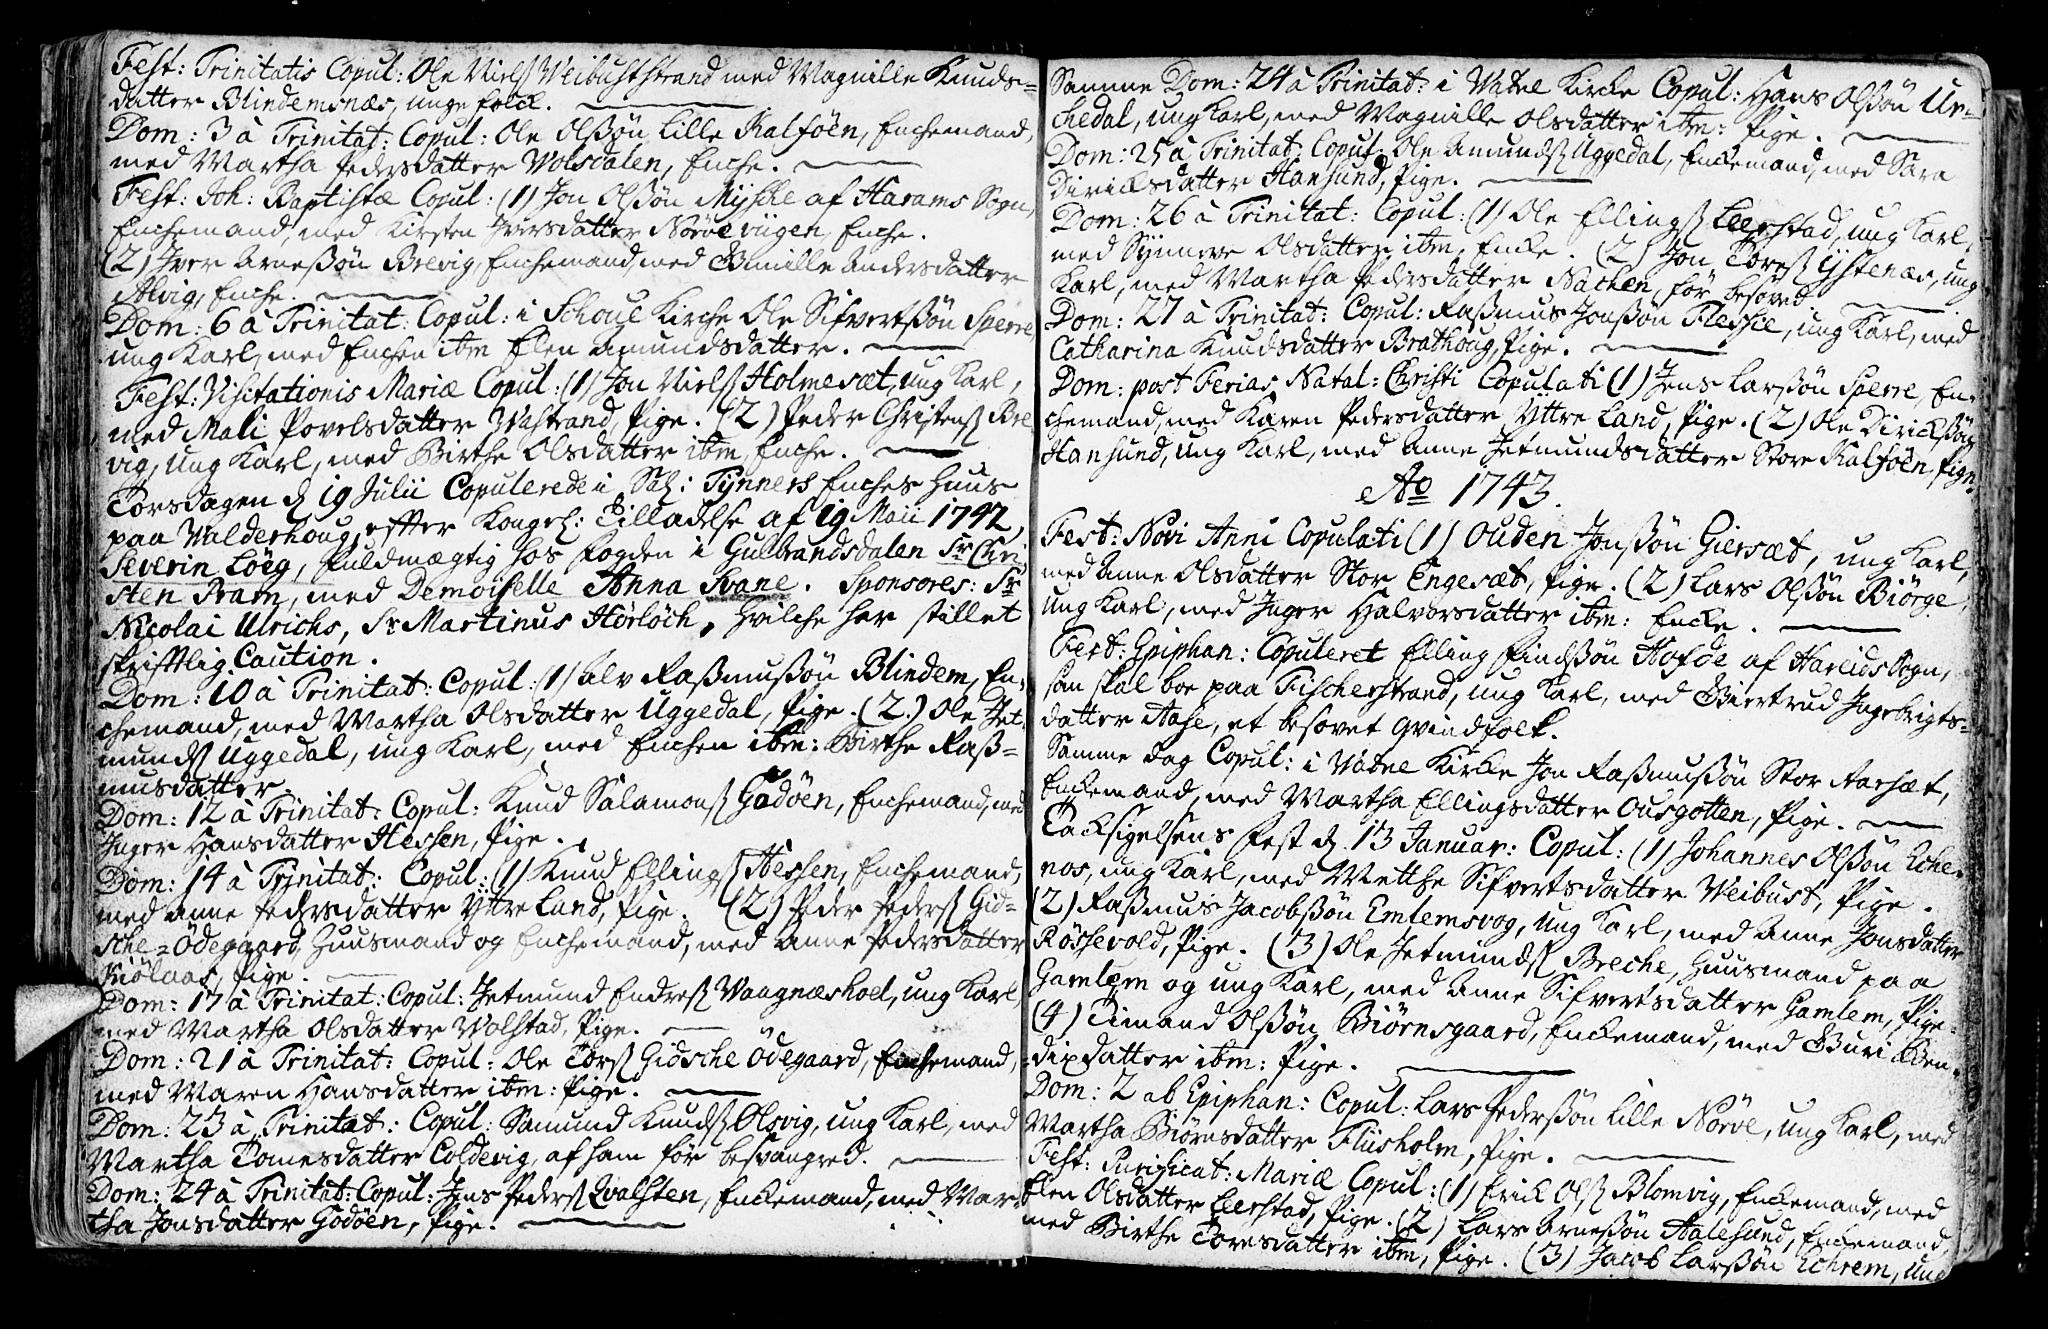 Fest: Trinitatis Copul: Ole Niels Weibuststrand med Magnille Knuds=
datter Blindemsnæs, unge folck.
Dom: 3 à Trinitat: Copul: Ole Olßøn Lille Kalføen, Enchemand,
med Martha Pedersdatter Wolsdalen, Enche.
Fest: Joh: Baptistæ Copul: (1) Jon Olßøn Myshe af Harams Sogn,
Enchemand, med Kirsten Iversdatter Nørve vügen, Enche.
(2) Iver Arneßøn Brevig, Enchemand, med Gunille Andersdatter
Alvig, Enche.
Dom: 6 à Trinitat: Copul: i Schoue Kirche Ole Sifvertßøn Sperre,
ung Karl, med Enchen ibm Elen Amundsdatter.
Fest: Visitationis Mariæ Copul: (1) Jon Niels Holmesæt, ung Karl,
med Mali Povelsdatter Wastrand, Pige. (2) Peder Christens Bre
vig, ung Karl, med Birthe Olsdatter ibm, Enche.
Torsdagen d. 19 Julii Copulerede i Sal: Tynners Enches Huus
paa Walderhoug, effter Kongel: Tilladelse af 19 Maii 1742,
Severin Löeg, Fuldmægtig hos fogden i Gulbrandsdalen Sr Chri
sten Pram, med Demoiselle Anna Svane. Sponsores: Sr
Nicolai Ulrichs, Sr Martinus Hørløch, Hvilche har stillet
skrifftlig Caution.
Dom: 10 à Trinitat: Copul: (1) Alv Raßmußøn Blindem, En=
chemand, med Martha Olsdatter Uggedal, Pige. (2.) Ole Jet=
munds Uggedal, ung Karl, med Enchen ibm: Birthe Raß=
musdatter
Dom: 12 à Trinitat: Copul: Knud Salamons Godøen, Enchemand, med
Inger Hansdatter Hessen, Pige.
Dom: 14 à Trinitat: Copul: (1) Knud Ellings Hessen, Enchemand,
med Anne Pedersdatter Yttre Land, Pige. (2) Peder Peders Gid=
sche = Ødegaard, Huusmand og Enchemand, med Anne Pedersdatter
Kiølaas, Pige.
Dom: 17 à Trinitat: Copul: Jetmund Endres Waagnæshoel, ung Karl,
med Martha Olsdatter Wolstad, Pige.
Dom: 21 à Trinitat: Copul: Ole Tors Gidsche Ødegaard, Enchemand,
med Maren Hansdatter ibm: Pige.
Dom: 23 à Trinitat: Copul: Samund Knuds Olsvig, ung Karl, med
Martha Tomesdatter Coldevig, af ham før besvangred.
Dom: 24 à Trinitat: Copul: Jens Peders Qvalsten, Enckemand, med Mar=
tha Jonsdatter Godøen, Pige.
Samme Dom: 24 à Trinitat: i Watne Kirke Copul: Hans Olßøn Ur=
skedal, ung Karl, med Magnille Olsdatter ibm: Pige.
Dom: 25 à Trinitat: Copul: Ole Amunds Uggedal, Enckemand, med Sara
Diricksdatter Hansund, Pige.
Dom: 26 à Trinitat: Copul: (1) Ole Ellings Leerstad, ung Karl,
med Synneve Olsdatter ibm, Encke. (2) Jon Tores Ystenæs, ung
Karl, med Martha Pedersdatter Nachen, før besøved
Dom: 27 à Trinitat: Copul: Raßmus Jonßøn Flessie, ung Karl, med
Catharina Knudsdatter Brathoug, Pige.
Dom: post Ferias Natal: Christi Copulati (1) Jens Larßøn Sperre, En=
chemand, med Karen Pedersdatter Yttre Land, Pige. (2) Ole Dirickßøn
Hansund, ung Karl, med Anne Jetmundsdatter Store Kalføen, Pige.
Ao 1743.
Fest: Novi Anni Copulati (1) Ouden Jonßøn Giersæt, ung Karl,
med Anne Olsdatter Stor Engesæt, Pige. (2) Lars Olßøn Biørge,
ung Karl, med Inger Halvorsdatter ibm: Encke.
Fest: Epiphan: Copuleret Elling Findßøn Hofde af Hareids Sogn,
som skal boe paa Fischerstrand, ung Karl, med Giertrud Ingebrigts=
datter Aase, et besovet Qvindfolk.
Samme Dag Copul: i Watne Kirke Jon Raßmußøn Stor Aarsæt,
Enckemand, med Martha Ellingsdatter Ousgotten, Pige.
Tacksigelsens Fest d. 13 Januar: Copul: (1) Johannes Olßøn Eche=
nos, ung Karl, med Mette Sifvertsdatter Weibust, Pige.
(2) Raßmus Jacobßøn Emlemsvog, ung Karl, med Anne Jonsdatter
Røssevold, Pige. (3) Ole Jetmunds Breche, Huusmand paa
Gamlem og ung Karl, med Anne Sifvertsdatter Gamlem, Pige.
(4) Timand Olßøn Biørnsgaard, Enckemand, med Guri Ben=
dixdatter ibm: Pige.
Dom: 2 ab Epiphan: Copul: Lars Pederßøn Lille Nørve, ung Karl, med
Martha Biørnsdatter Fliisholm, Pige.
Fest: Purificat: Mariæ Copul: (1) Erick Ols Blomvig, Enckemand, med
Elen Olsdatter Leerstad, Pige. (2) Lars Arneßøn Aalesund, Enckemand,
med Birthe Toresdatter ibm, Pige. (3) Jacob Larßøn Echrem, ung